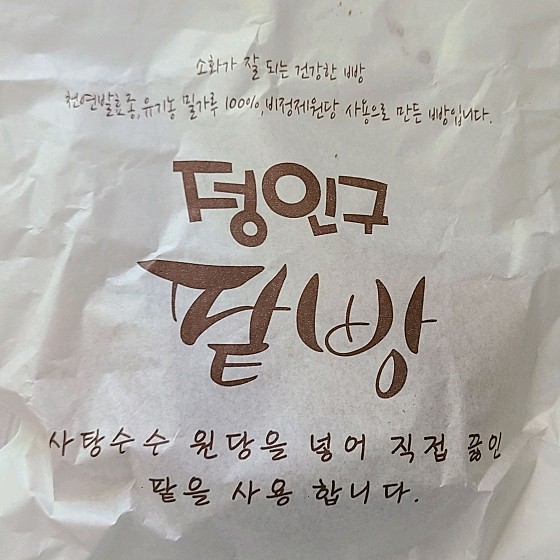 소화가 잘 되는 건강한 빵
천연발효종,유기농 밀가루 100%,비정제원당 사용으로 만든 빵입니다.
정인구
팥빵
사탕수수 원당을 넣어 직접 끓인
팥을 사용 합니다.